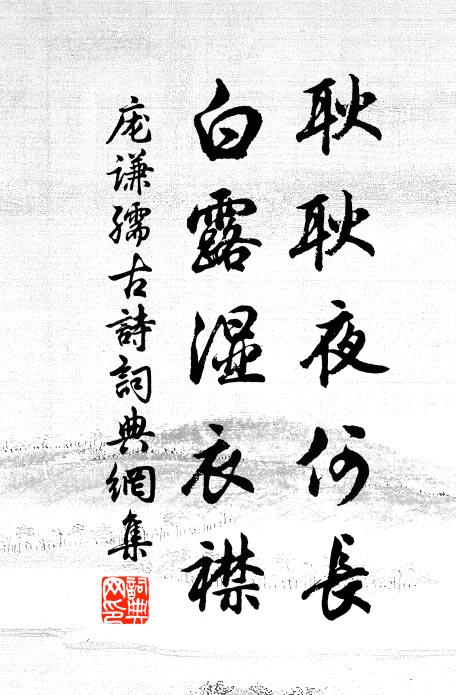 耿耿夜何長
白露湿衣襟
庞謙孺古詩詞典網集
詞典网印